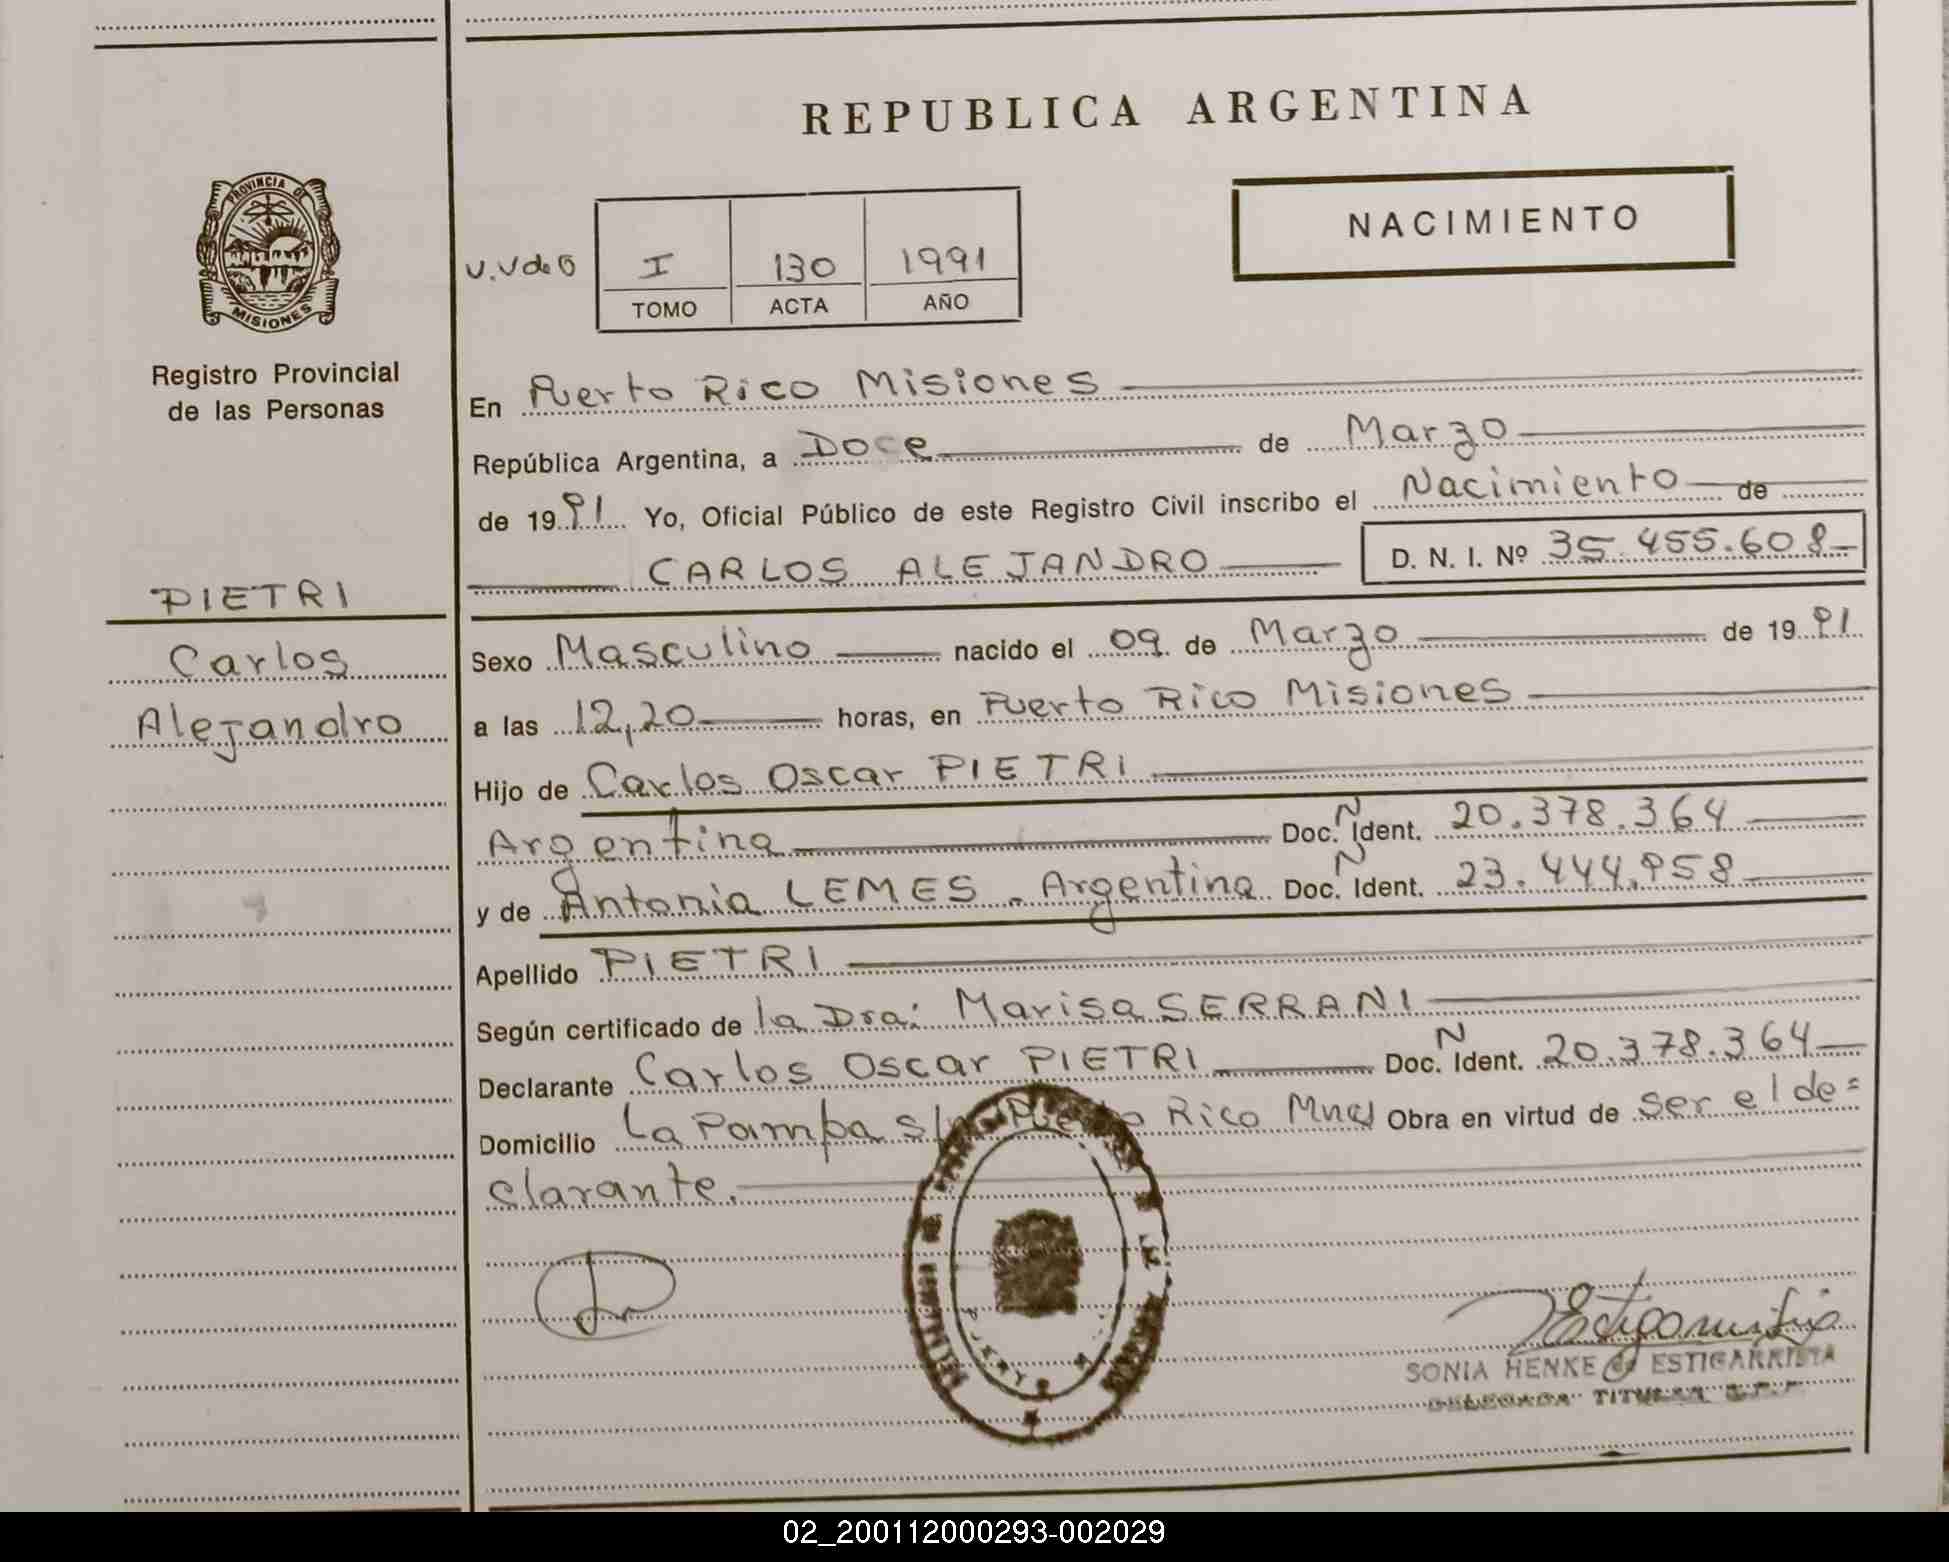 REPUBLICA ARGENTINA
NACIMIENTO
PROVINCIA DE
MISIONES
Registro Provincial
de las Personas
U.V de O
I 130 1991
TOMO ACTA AÑO
En Puerto Rico Misiones
República Argentina, a Doce de Marzo
de 1991 Yo, Oficial Público de este Registro Civil inscribo el Nacimiento de
CARLOS ALEJANDRO D. N. I. Nº 35.455.608
PIETRI
Carlos
Alejandro
Sexo Masculino nacido el 09 de Marzo de 1991
a las 12,20 horas, en Puerto Rico Misiones
Hijo de Carlos Oscar PIETRI
Argentina Doc. N Ident. 20.378.364
y de Antonia LEMES. Argentina Doc. N Ident. 23.444.958
Apellido PIETRI
Según certificado de la Dra: Marisa SERRANI
Declarante Carlos Oscar PIETRI Doc. N Ident. 20.378.364
Domicilio La Pampa s/n Puerto Rico Mnes Obra en virtud de ser el de=
clarante.
SONIA HENKE de ESTIGARRIBIA
DELEGADA TITULAR
02_200112000293-002029